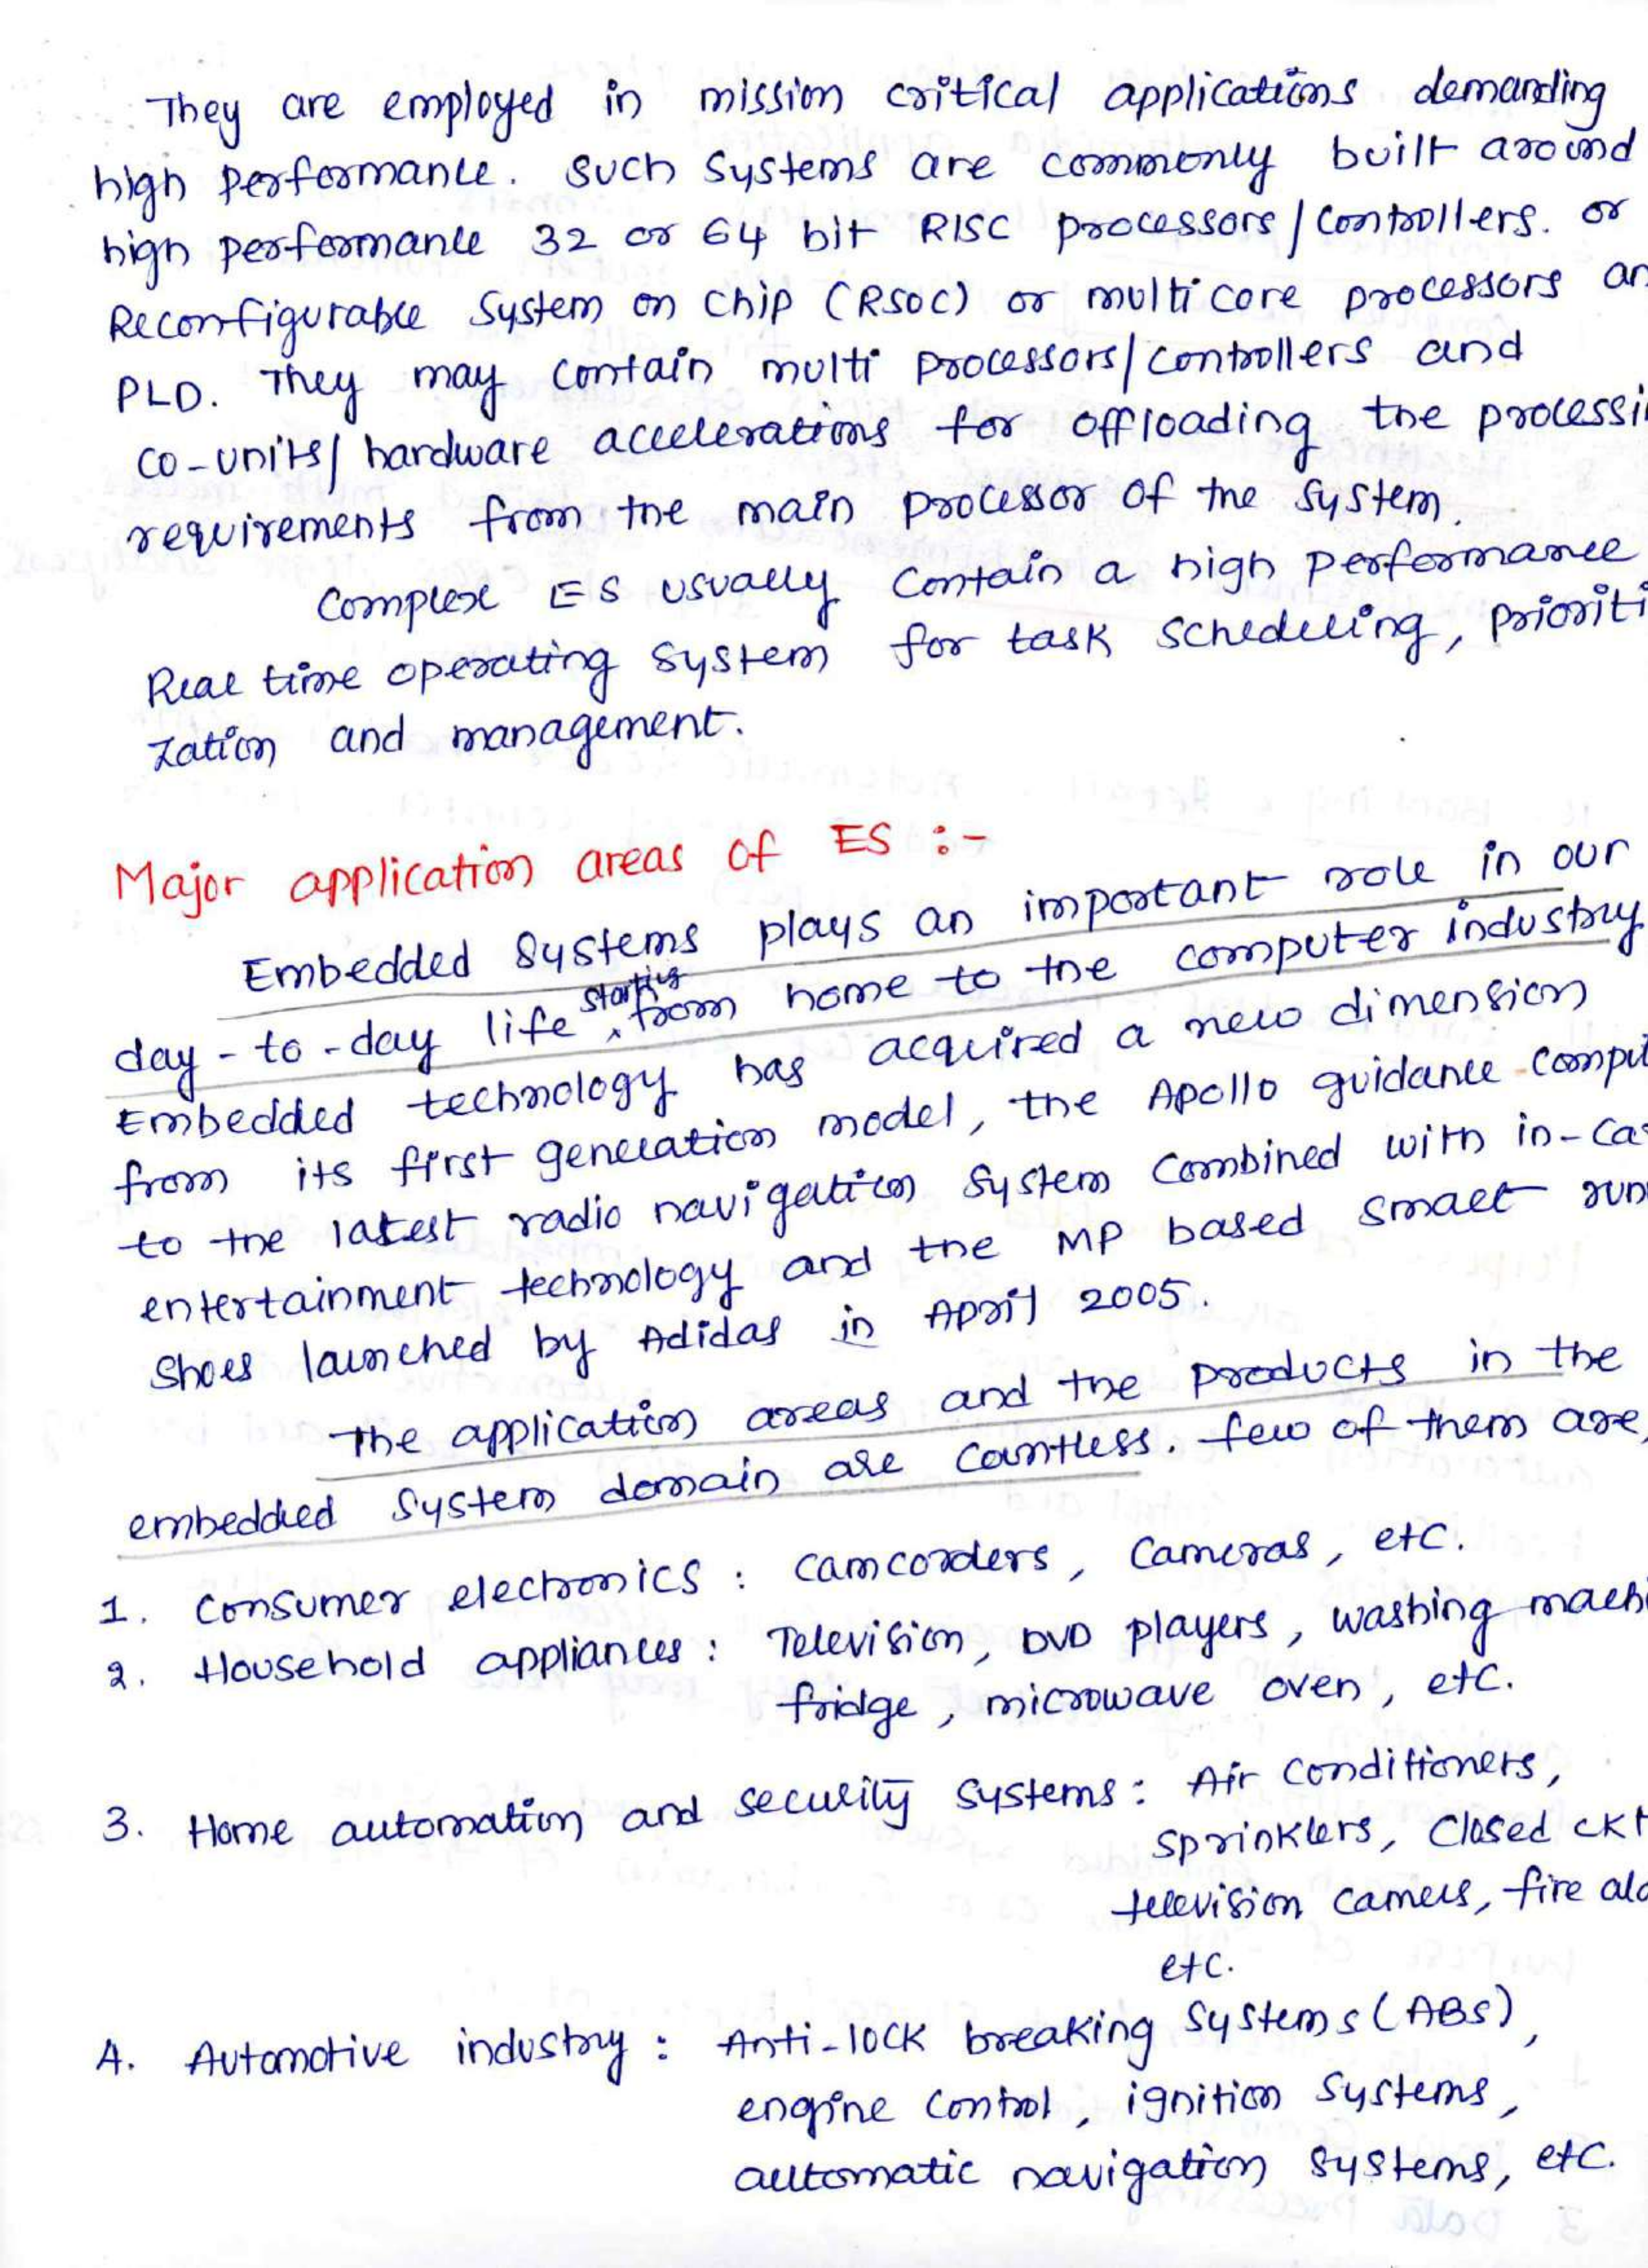 They are employed in mission critical applications demanding
high performance. Such systems are commonly built around
high performance 32 or 64 bit RISC processors/controllers. or
Reconfigurable System on Chip (RSOC) or multicore processors an
PLD. They may contain multi processors/controllers and
co-units/hardware accelerations for offloading the processi
requirements from the main processor of the system.
Complex ES usually contain a high performance
Real time operating system for task scheduling, prioriti
zation and management.
Major application areas of ES :-
Embedded systems plays an important role in our
day-to-day life starting from home to the computer industry
Embedded technology has acquired a new dimension
from its first generation model, the Apollo guidance comput
to the latest radio navigation system combined with in-ca
entertainment technology and the MP based smart run
shoes launched by Adidas in April 2005.
The application areas and the products in the
embedded system domain are countless. few of them are,
1. Consumer electronics : camcorders, Cameras, etc.
2. Household appliances : Television, DVD players, washing machi
fridge, microwave oven, etc.
3. Home automation and security systems : Air conditioners,
sprinklers, Closed ckt
television camers, fire ala
etc.
4. Automotive industry : Anti-lock breaking systems (ABS),
engine control, ignition systems,
automatic navigation systems, etc.